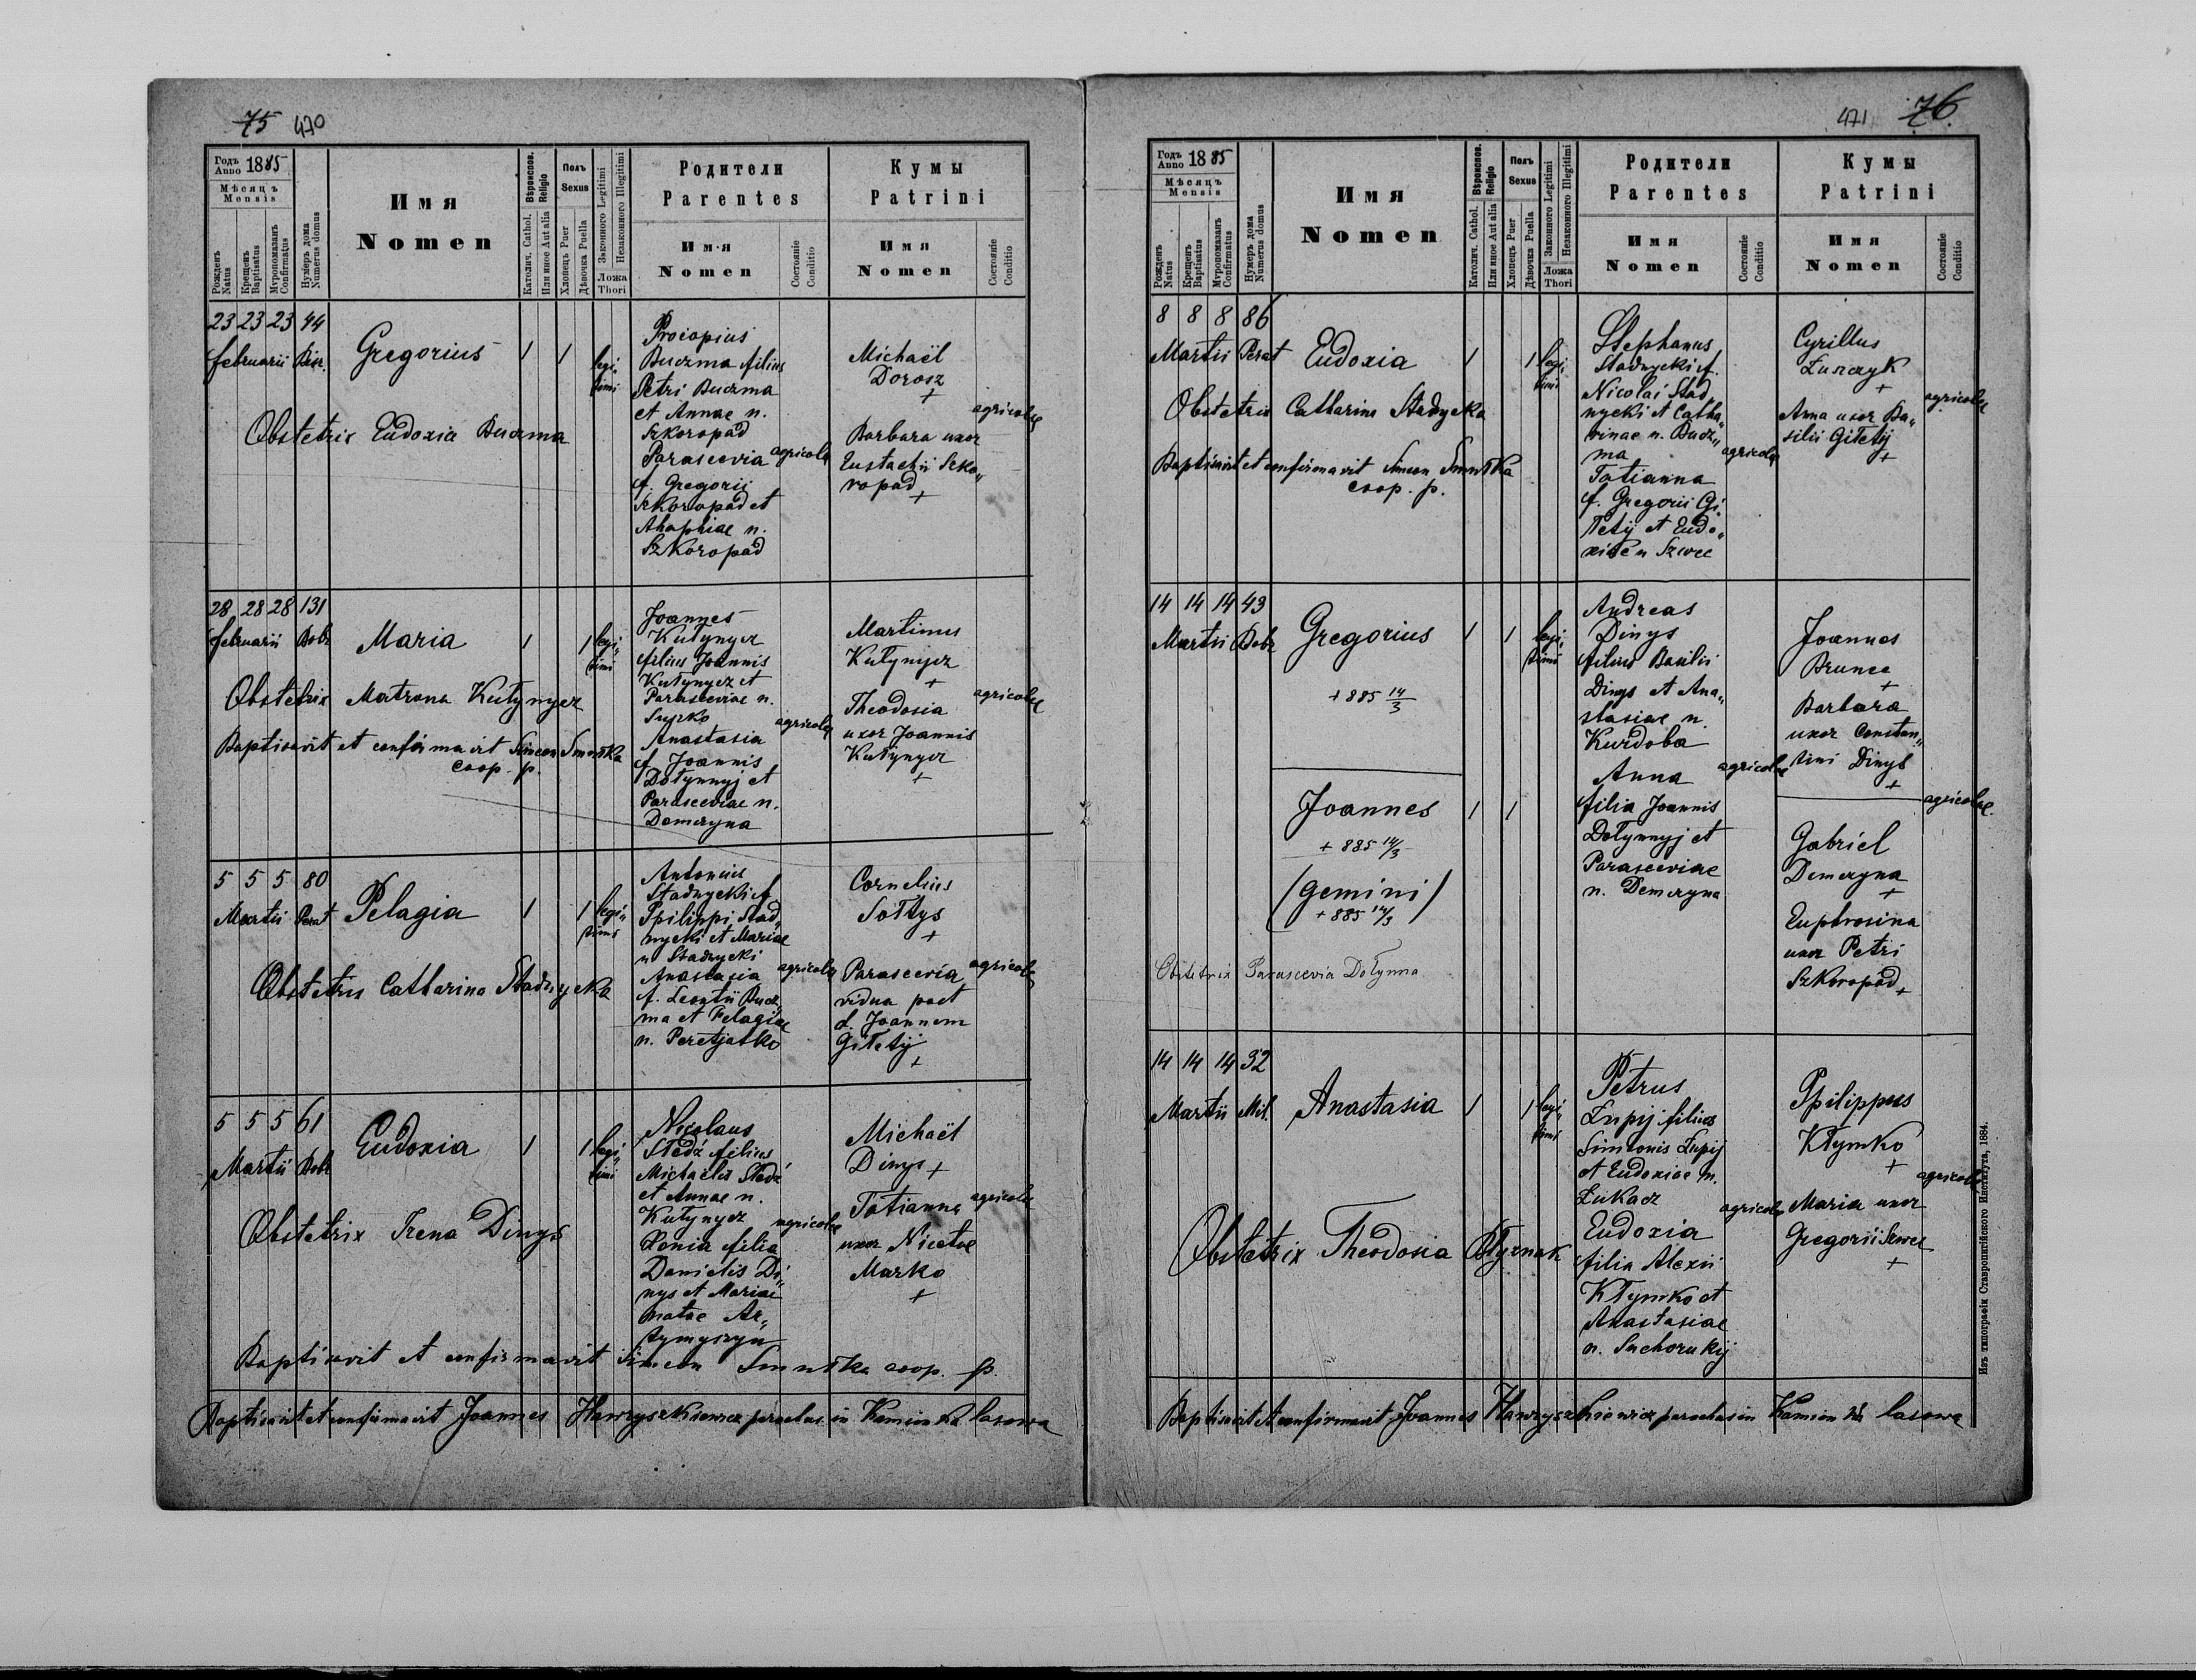 75 470
Годъ Anno 1885
Мѣсяцъ
Mensis
Рожденъ Natus
Крещенъ Baptisatus
Мѵропомазанъ Confirmatus
Нумеръ дома Numerus domus
Имя
Nomen
Вѣроисков. Religio
Католич. Cathol.
Или иное Aut alia
Полъ
Sexus
Хлопецъ Puer
Дѣвочка Puella
Законного Legitimi
Незаконного Illegitimi
Ложа
Thori
Родители
Parentes
Имя
Nomen
Состояніе
Conditio
Кумы
Patrini
Имя
Nomen
Состояніе
Conditio
23 23 23 44
februarii
Gregorius
1 1
legi„
timi
Procopius
Buczma filius
Petri Buczma
et Annae n.
Szkoropad
Parascevia
f. Gregorii
Szkoropad et
Ahaphiae n.
Szkoropad
agricolae
Michaël
Dorosz
+
Barbara uxor
Eustachii Szko„
ropad
+
agricolae
Obstetrix Eudoxia Buczma
28 28 28 131
februarii Dobr
Maria
1 1
legi„
timi
Joannes
Kutynycz
filius Joannis
Kutynycz et
Parasceviae n.
Anastasia
f. Joannis
Dołynnyj et
Parasceviae n.
Demczyna
agricolae
Martinus
Kutynycz
+
Theodosia
uxor Joannis
Kutynycz
+
agricolae
Obstetrix Matrona Kutynycz
Baptisavit et confirmavit Simeon
coop. p.
5 5 5 80
Martii Perat
Pelagia
1 1
legi„
timi
Antonius
Stadnycki f.
Philippi Stad„
nycki et Mariae
n Stadnycki
Anastasia
f. Leontii Bucz„
ma et Pelagiae
n. Peretjatko
agricolae
Cornelius
Sołtys
+
Parascevia
vidua post
d. Joannem
Gitetij
+
agricolae
Obstetrix Catharina Stadnycka
5 5 5 61
Martii Dobr
Eudoxia
1 1
legi„
timi
Nicolaus
Stedź filius
Michaelis Stedź
et Annae n.
Kutynycz
Xenia filia
Danielis Di„
nys et Mariae
natae Ar„
tymyszyn
agricolae
Michaël
Dinys +
Tatianna
uxor Nicetae
Marko
+
agricolae
Obstetrix Irena Dinys
Baptisavit et confirmavit Simeon coop. p.
Baptisavit et confirmavit Joannes Hawryszkiewicz parochus in Kamionka lasowa
471 76
Годъ Anno 1885
Мѣсяцъ
Mensis
Рожденъ Natus
Крещенъ Baptisatus
Мѵропомазанъ Confirmatus
Нумеръ дома Numerus domus
Имя
Nomen
Вѣроисков. Religio
Католич. Cathol.
Или иное Aut alia
Полъ
Sexus
Хлопецъ Puer
Дѣвочка Puella
Законного Legitimi
Незаконного Illegitimi
Ложа
Thori
Родители
Parentes
Имя
Nomen
Состояніе
Conditio
Кумы
Patrini
Имя
Nomen
Состояніе
Conditio
8 8 8 86
Martii Perat
Eudoxia
1 1
legi„
timi
Stephanus
Stadnycki f.
Nicolai Stad
nycki et Catha„
rinae n. Bucz„
ma
Tatianna
f. Gregorii Gi„
tetij et Eudo„
xiae n Szwec
agricolae
Cyrillus
+
Anna uxor Ba„
silii Gitetij
+
agricolae
Obstetrix Catharina Stadnycka
Baptisavit et confirmavit Simeon
coop. p.
14 14 14 43
Martii Dobr
Gregorius
1 1
legi„
timi
+ 885 14/3
Joannes
1 1
+ 885 14/3
(gemini)
+ 885 14/3
Andreas
Dinys
filius Basilii
Dinys et Ana„
stasiae n.
Kurdoba
Anna
filia Joannis
Dołynnyj et
Parasceviae
n. Demczyna
agricolae
Joannes
Brunec
+
Barbara
uxor Constan„
tini Dinys
+
Gabriel
Demczyna
+
Euphrosina
uxor Petri
Szkoropad +
agricolae
Obstetrix Parascevia Dołynna
14 14 14 32
Martii Mił.
Anastasia
1 1
legi„
timi
Petrus
Łupij filius
Simeonis Łupij
et Eudoxiae n.
Łukacz
Eudoxia
filia Alexii
Kłymko et
Anastasiae
n. Suchorukij
agricolae
Philippus
Kłymko
+
Maria uxor
Gregorii Szwec
+
agricolae
Obstetrix Theodosia Błyznak
Baptisavit et confirmavit Joannes Hawryszkiewicz parochus in Kamionka lasowa
Изъ типографіи Ставропигійского Института, 1884.